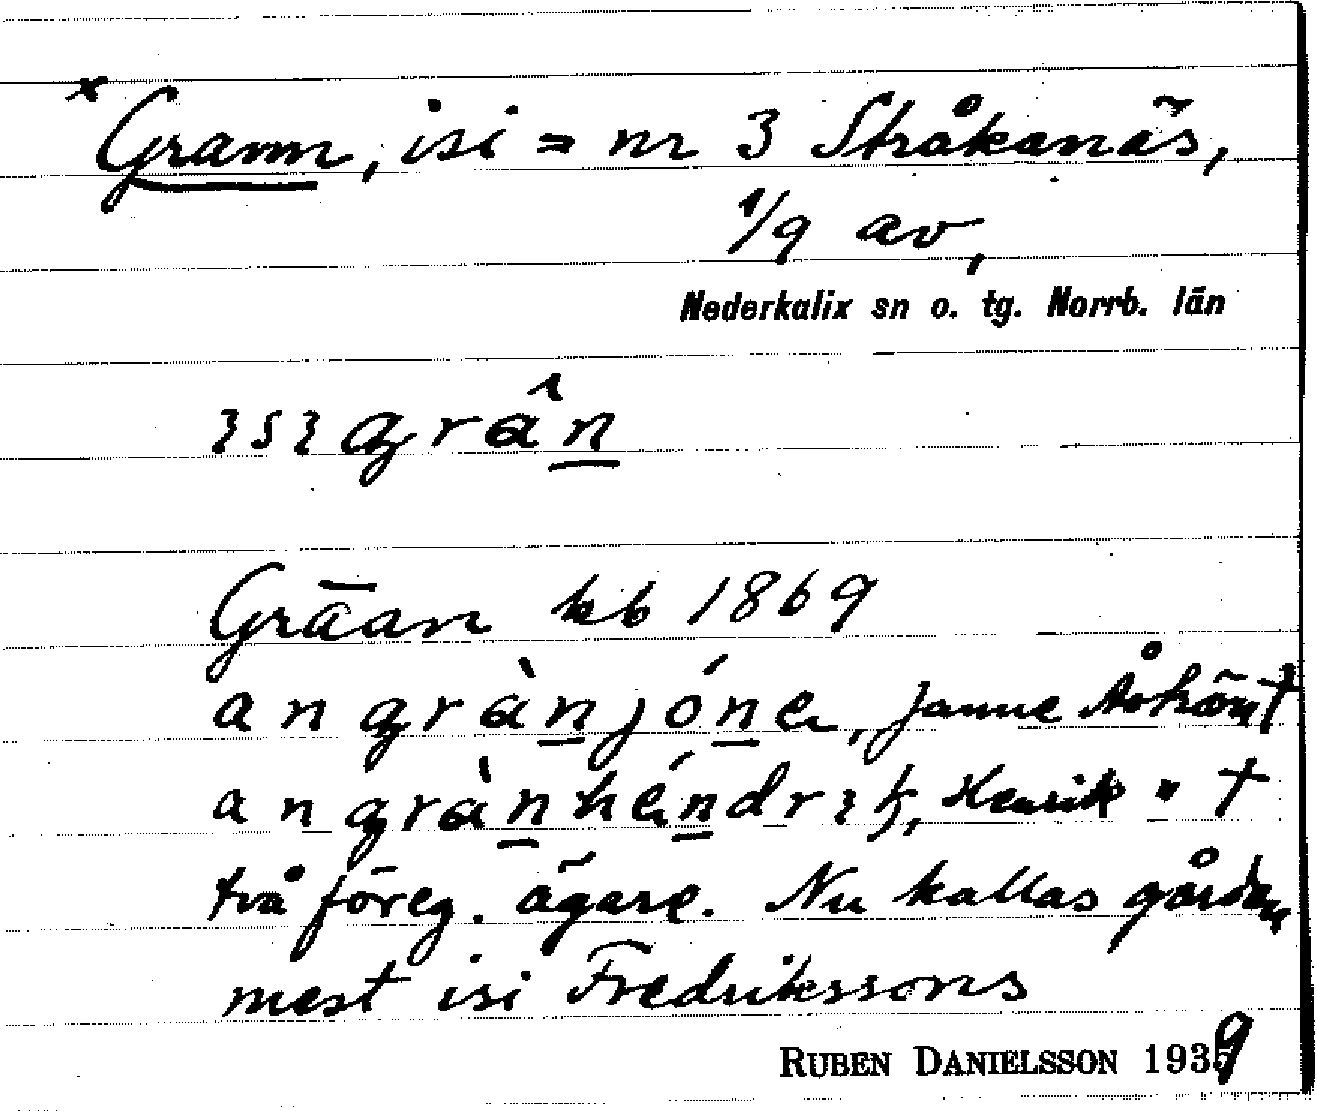 x Grann, isi = nr 3 Stråkanäs,
1/9 av,
Nederkalix sn o. tg. Norrb. län
ısı grân
Grāan kb 1869
an gràn jóne, Janne Åström †
an gràn héndrık, Henrik " †
två föreg. ägare. Nu kallas gården
mest isi Fredrikssons
RUBEN DANIELSSON 1939